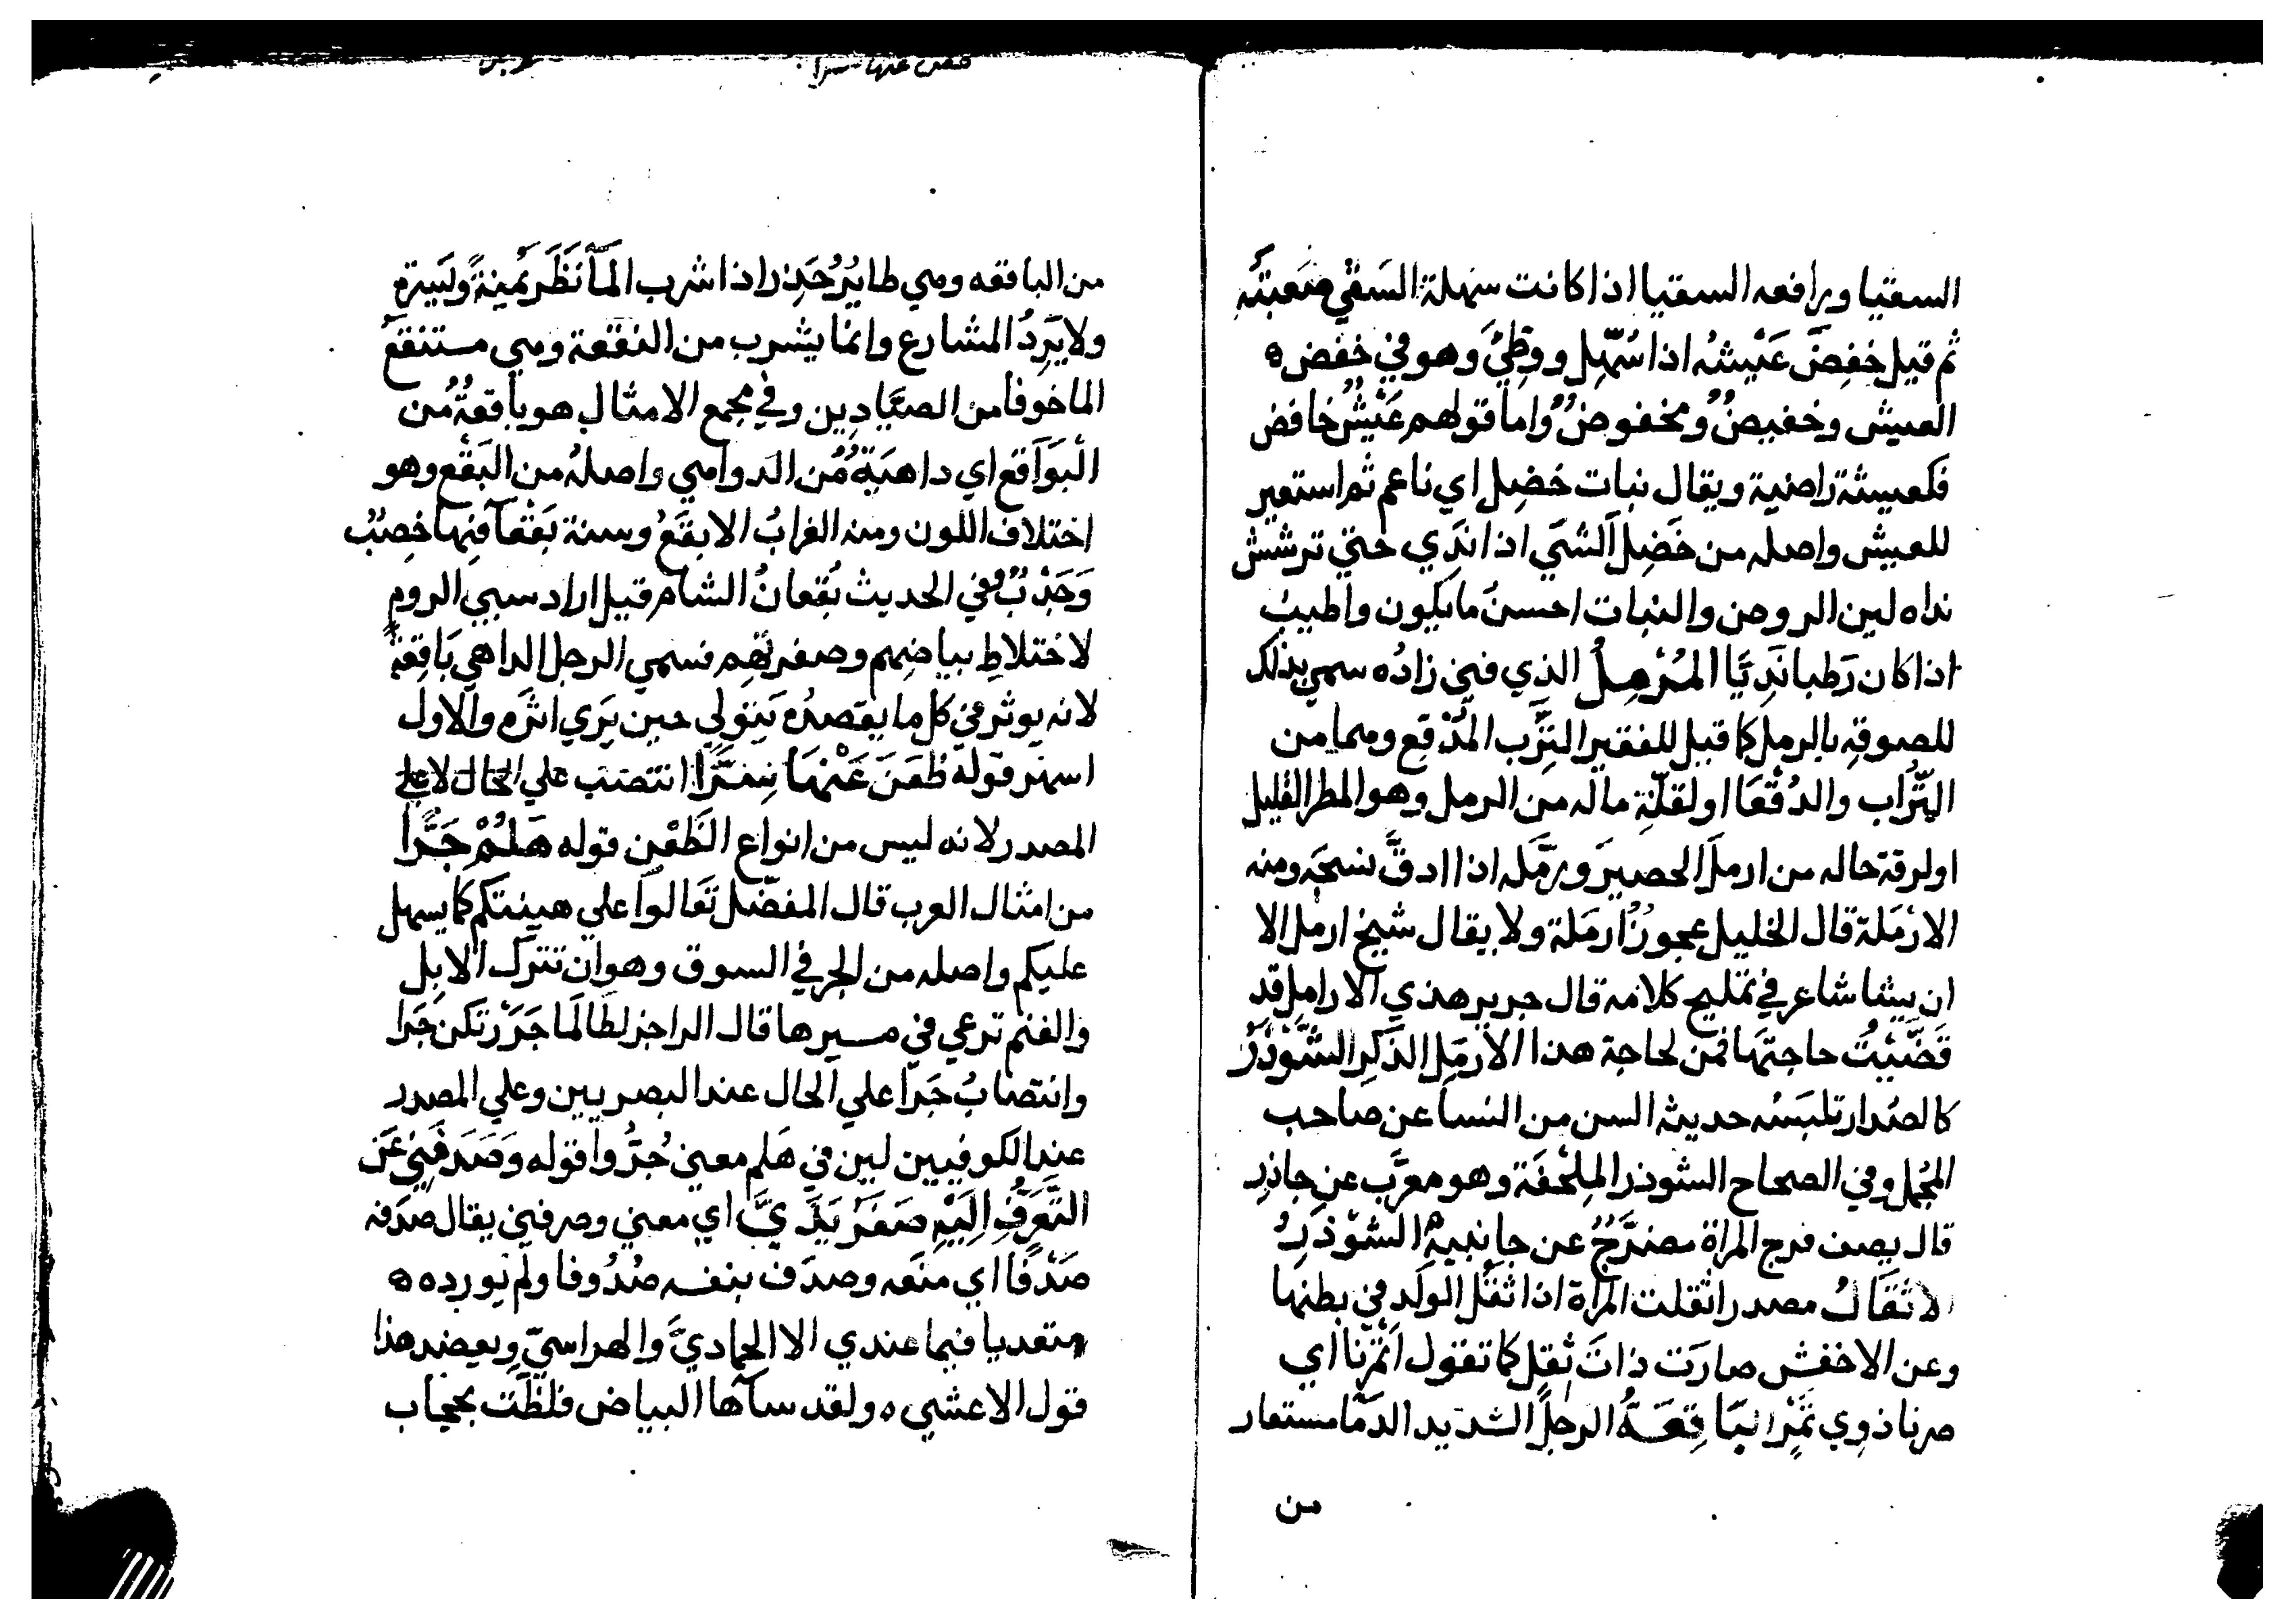 السقيا ورافعه السقيا اذا كانت سهلة السقي صعبته
ثم قيل خفض عيشه اذا سهل ووطئ وهو في خفض ه
العيش وخفيض ومخفوض واما قولهم عيش خافض
فكعيشة راضية ويقال نبات خضل اي ناعم ثم استعير
للعيش واصله من خضل الشي اذا ندي حتي ترشش
نداه لين الروض والنبات احسن ما يكون واطيب
اذا كان رطبا نديا المرمل الذي فني زاده سمي بذلك
للصوقه بالرمل كما قيل للفقير الترب المدقع وهما من
التراب والدقعا او لقلة ماله من الرمل وهو المطر القليل
او لرقة حاله من ارمل الحصير ورمله اذا ادق نسجه ومنه
الارملة قال الخليل عجوز ارملة ولا يقال شيخ ارمل الا
ان يشا شاعر في تمليح كلامه قال جرير هذي الارامل قد
قضيت حاجتها فمن لحاجة هذا الارمل الذكر الشوذر
كالصدار تلبسه حديثه السن من النسا عن صاحب
المجمل وفي الصحاح الشوذر الملحفة وهو معرب عن جاذر
قال يصف فرج المراة مضرج عن جانبيه الشوذر
الاثقال مصدر اثقلت المراة اذا ثقل الولد في بطنها
وعن الاخفش صارت ذات ثقل كما تقول اتمرنا اي
صرنا ذوي تمر الباقعة الرجل الشديد الدها مستعار
من
من الباقعه وهي طاير حذر اذا شرب الما نظر يمينة ويسرة
ولا يرد المشارع وانما يشرب من النقعة وهي مستنقع
الما خوفا من الصيادين وفي مجمع الامثال هو باقعة من
البواقع اي داهية من الدواهي واصله من البقع وهو
اختلاف اللون ومنه الغراب الابقع وسنة بقعا فيها خصب
وجدب وفي الحديث بقعان الشام قيل اراد سبي الروم
لاختلاط بياضهم وصفرتهم فسمي الرجل الداهي باقعة
لانه يوثر في كل ما يقصده يتولي حين يري اثره والاول
اسهر قوله ظعن عنها سرا انتصب علي الحال لا علي
المصدر لانه ليس من انواع الظعن قوله هلم جرا
من امثال العرب قال المفضل تعالوا علي هينتكم كما يسهل
عليكم واصله من الجر في السوق وهو ان تترك الابل
والغنم ترعي في مسيرها قال الراجز لطالما جررتكن جرا
وانتصاب جرا علي الحال عند البصريين وعلي المصدر
عند الكوفيين لين في هلم معني جروا قوله وصدفني عن
التعرف اليه صفر يدي اي معني وصرفني يقال صدفه
صدفا اي منعه وصدف بنفسه صدوفا ولم يورده ه
متعديا فيما عندي الا الجمادي والهراسي ويعضد هذا
قول الاعشي ه ولقد ساها البياض فلظت بحجاب